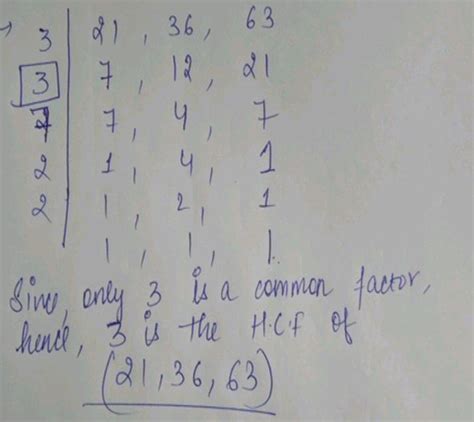 3 | 21, 36, 63
3 | 7, 12, 21
7 | 7, 4, 7
2 | 1, 4, 1
2 | 1, 2, 1
1, 1, 1.
Since, only 3 is a common factor,
hence, 3 is the H.C.F of
(21, 36, 63)